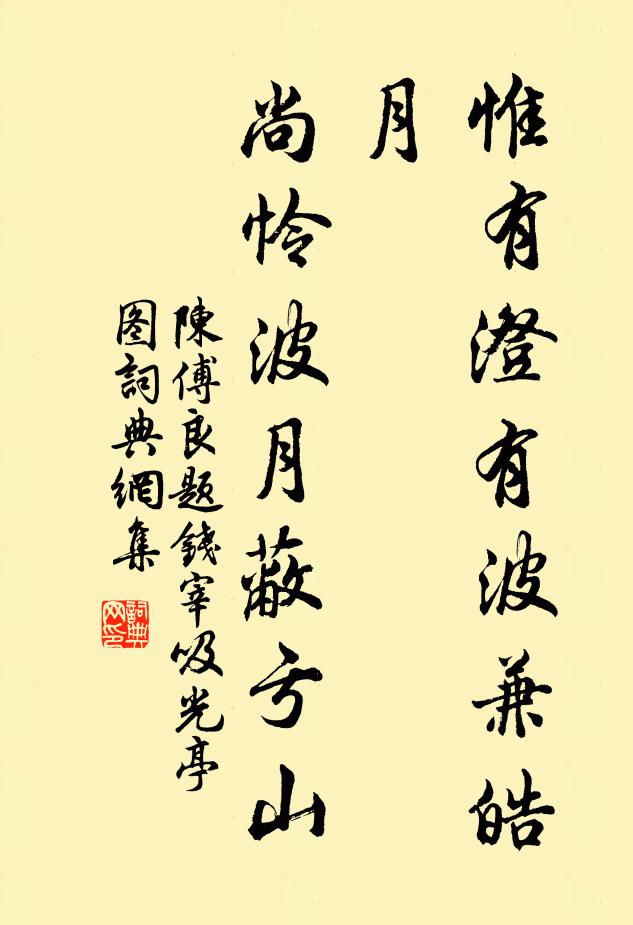 惟有澄有波兼皓
月
尚怜波月蔽亏山
陳傅良题錢宰吸光亭
图詞典網集
詞典
网印